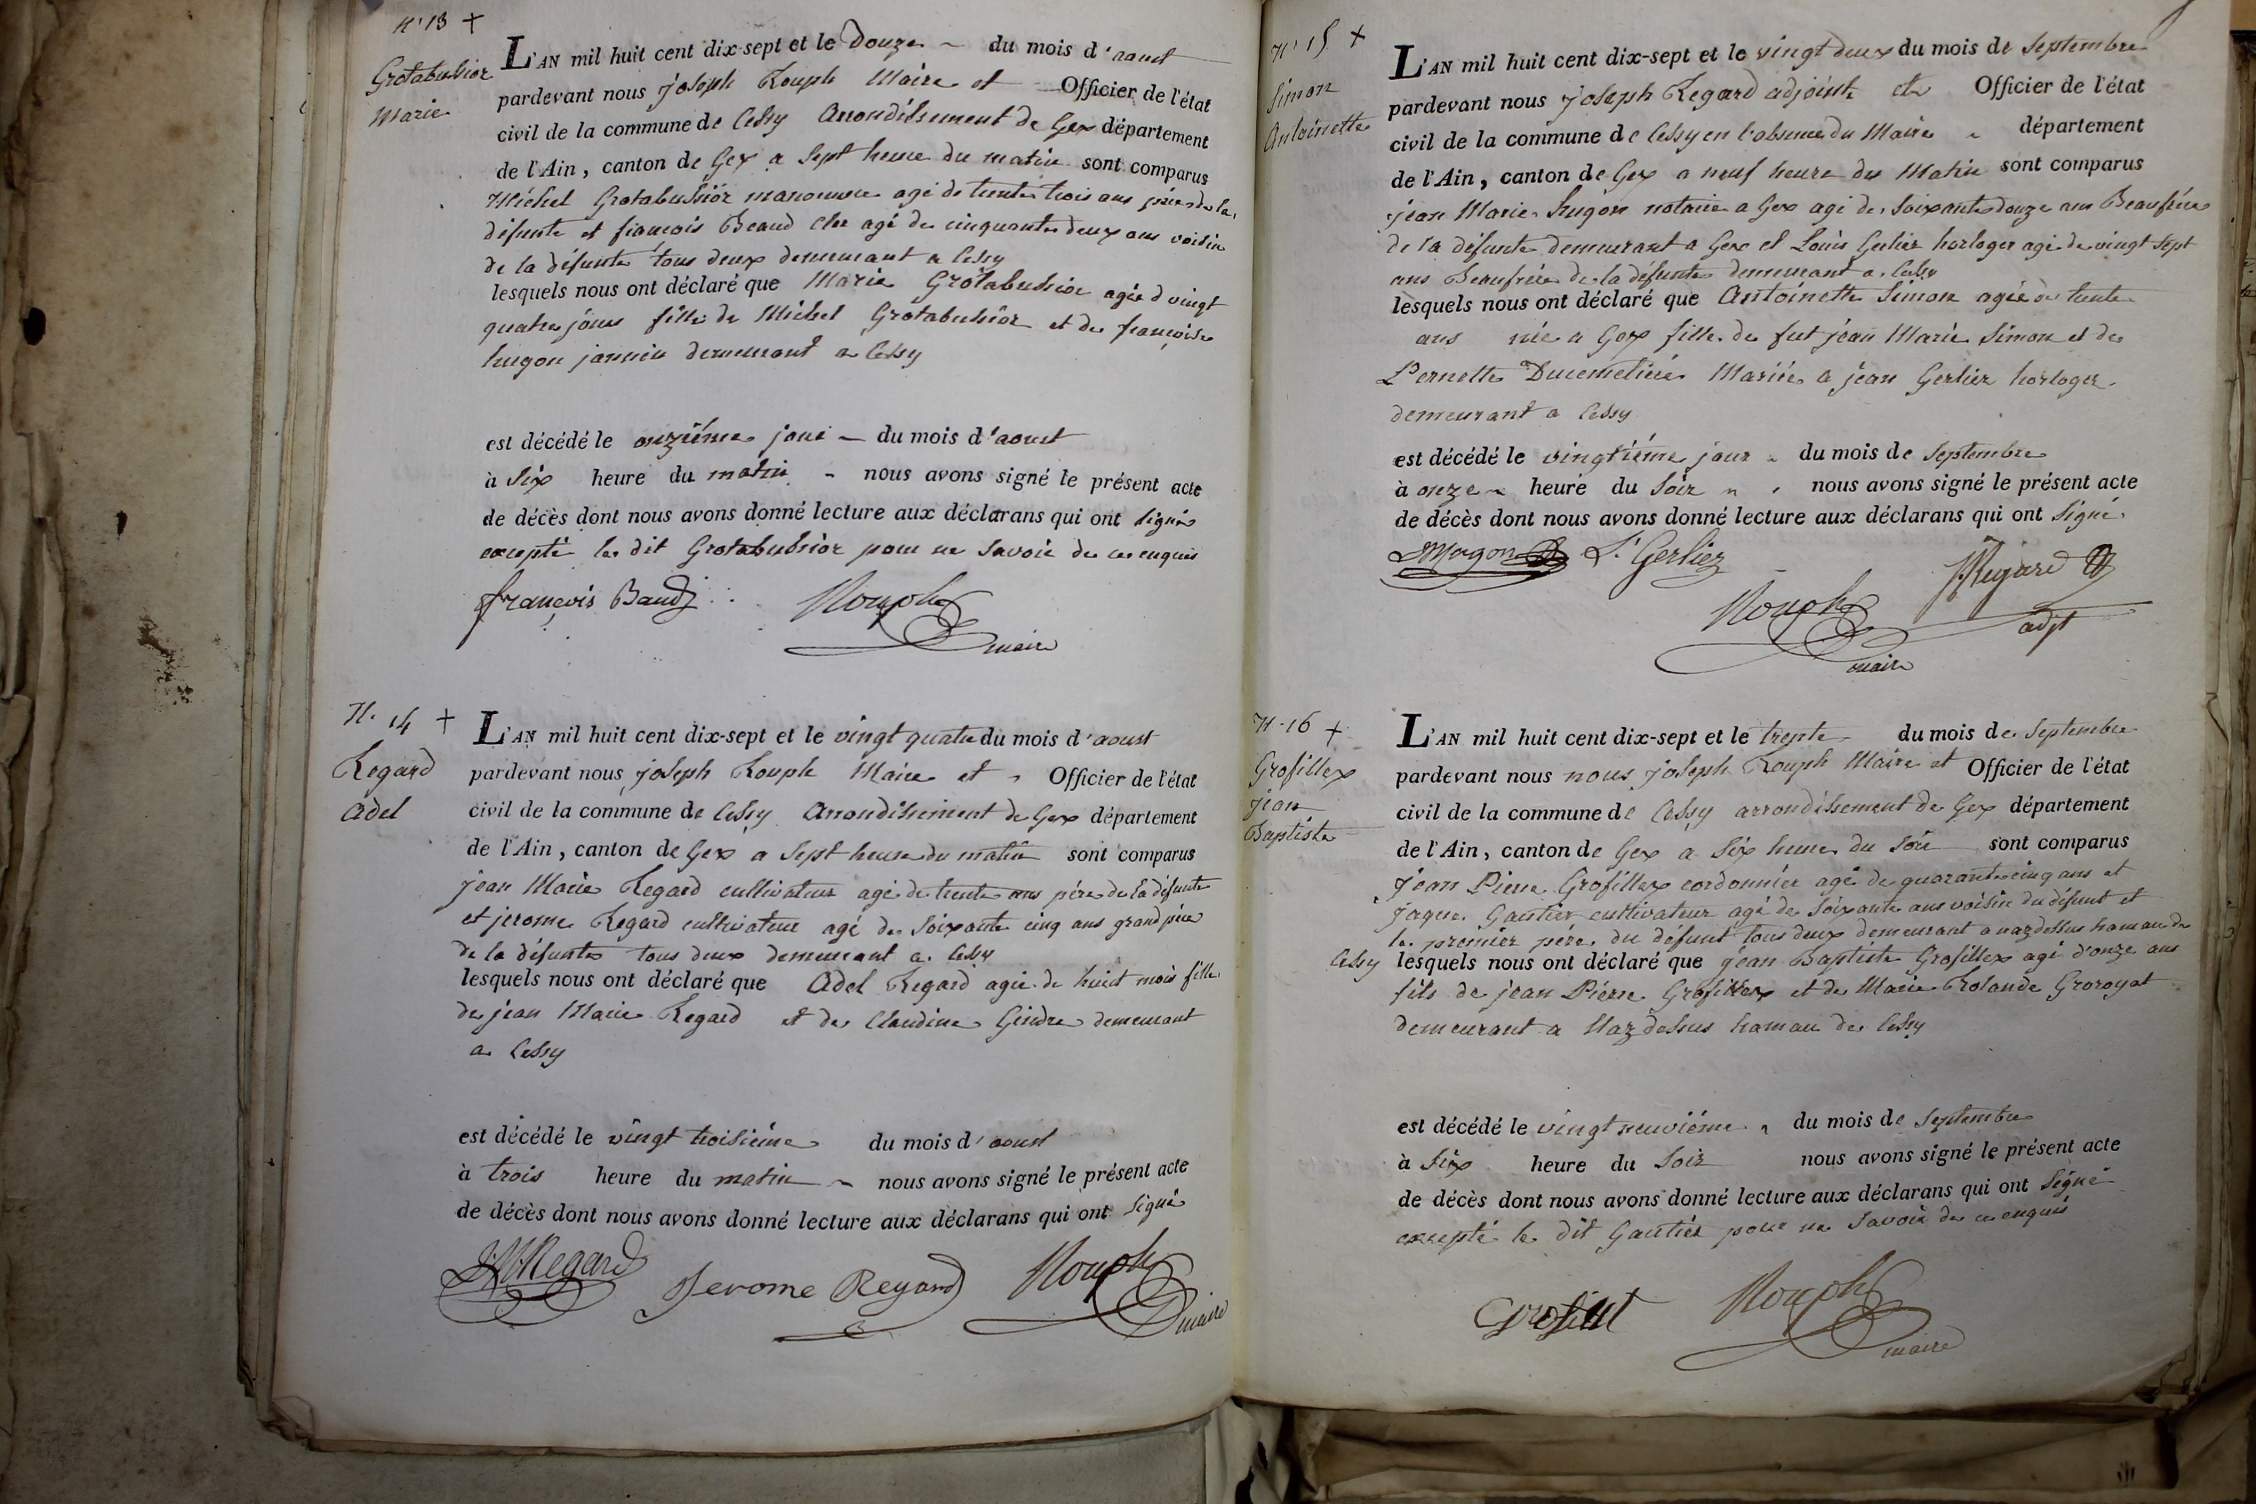 N° 13 +
Grotabussior
Marie
L'AN mil huit cent dix-sept et le Douze ~ du mois d'aoust
pardevant nous joseph Rouph Maire et Officier de l'état
civil de la commune de Cessy Arrondissement de Gex département
de l'Ain, canton de Gex a sept heure du matin sont comparus
Michel Grotabussior manouvre agé de trente trois ans père de la
défunte et francois Beaud Clre agé de cinquante deux ans voisin
de la défunte tous deux demeurant a Cessy
lesquels nous ont déclaré que Marie Grotabussior agée d vingt
quatre jours fille de Michel Grotabussior et de françoise
hugon jannin demeurant a Cessy
est décédé le onziéme jour ~ du mois d'aoust
à six heure du matin ~ nous avons signé le présent acte
de décès dont nous avons donné lecture aux déclarans qui ont signé
excepté le dit Grotabussior pour ne savoir de ce enquis
françois Baud
Rouph
maire
N. 14 +
Regard
Adel
L'AN mil huit cent dix-sept et le vingt quatre du mois d'aoust
pardevant nous joseph Rouph Maire et Officier de l'état
civil de la commune de Cessy Arrondissement de Gex département
de l'Ain, canton de Gex a sept heure du matin sont comparus
jean Marie Regard cultivateur agé de trente ans pére de la défunte
et jerome Regard cultivateur agé de soixante cinq ans grand pére
de la défunte tous deux demeurant a Cessy
lesquels nous ont déclaré que Adel Regard agée de huit mois fille
de jean Marie Regard et de Claudine Gindre demeurant
a Cessy
est décédé le vingt troisiéme du mois d'aoust
à trois heure du matin ~ nous avons signé le présent acte
de décès dont nous avons donné lecture aux déclarans qui ont signé
JMRegard Jerome Regard Rouph
maire
N° 15 +
Simon
Antoinette
L'AN mil huit cent dix-sept et le vingt deux du mois de septembre
pardevant nous joseph Regard adjoint et Officier de l'état
civil de la commune de Cessy en l'absence du Maire ~ département
de l'Ain, canton de Gex a neuf heure du Matin sont comparus
jean Marie hugon notaire a Gex agé de soixante douze ans Beaufrére
de la défunte demeurant a Gex et Louis Gerlier horloger agé de vingt sept
ans Beaufrére de la défunte demeurant a Cessy
lesquels nous ont déclaré que Antoinette Simon agée de trente
ans née a Gex fille de fut jean Marie Simon et de
Pernette Ducemetiére Mariée a jean Gerlier horloger
demeurant a Cessy
est décédé le vingtiéme jour ~ du mois de septembre
à onze ~ heure du soir ~ nous avons signé le présent acte
de décès dont nous avons donné lecture aux déclarans qui ont signé
L. Gerlier JRegard
Rouph adjt
maire
N. 16 +
Grosillex
jean
Baptiste
L'AN mil huit cent dix-sept et le trente du mois de septembre
pardevant nous nous joseph Rouph Maire et Officier de l'état
civil de la commune de Cessy arrondissement de Gex département
de l'Ain, canton de Gex a six heure du soir sont comparus
jean Pierre Grosillex cordonnier agé de quarante cinq ans et
jaque Gautier cultivateur agé de soixante ans voisin du défunt et
le premier pére du défunt tous deux demeurant a nazdessus hamau de
Cessy lesquels nous ont déclaré que jean Baptiste Grosillex agé d'onze ans
fils de jean Pierre Grosillex et de Marie Rolande Groroyat
demeurant a Naz dessus hamau de Cessy
est décédé le vingt neuviéme ~ du mois de septembre
à six heure du soir nous avons signé le présent acte
de décès dont nous avons donné lecture aux déclarans qui ont signé
excepté le dit Gautier pour ne savoir de ce enquis
Rouph
maire